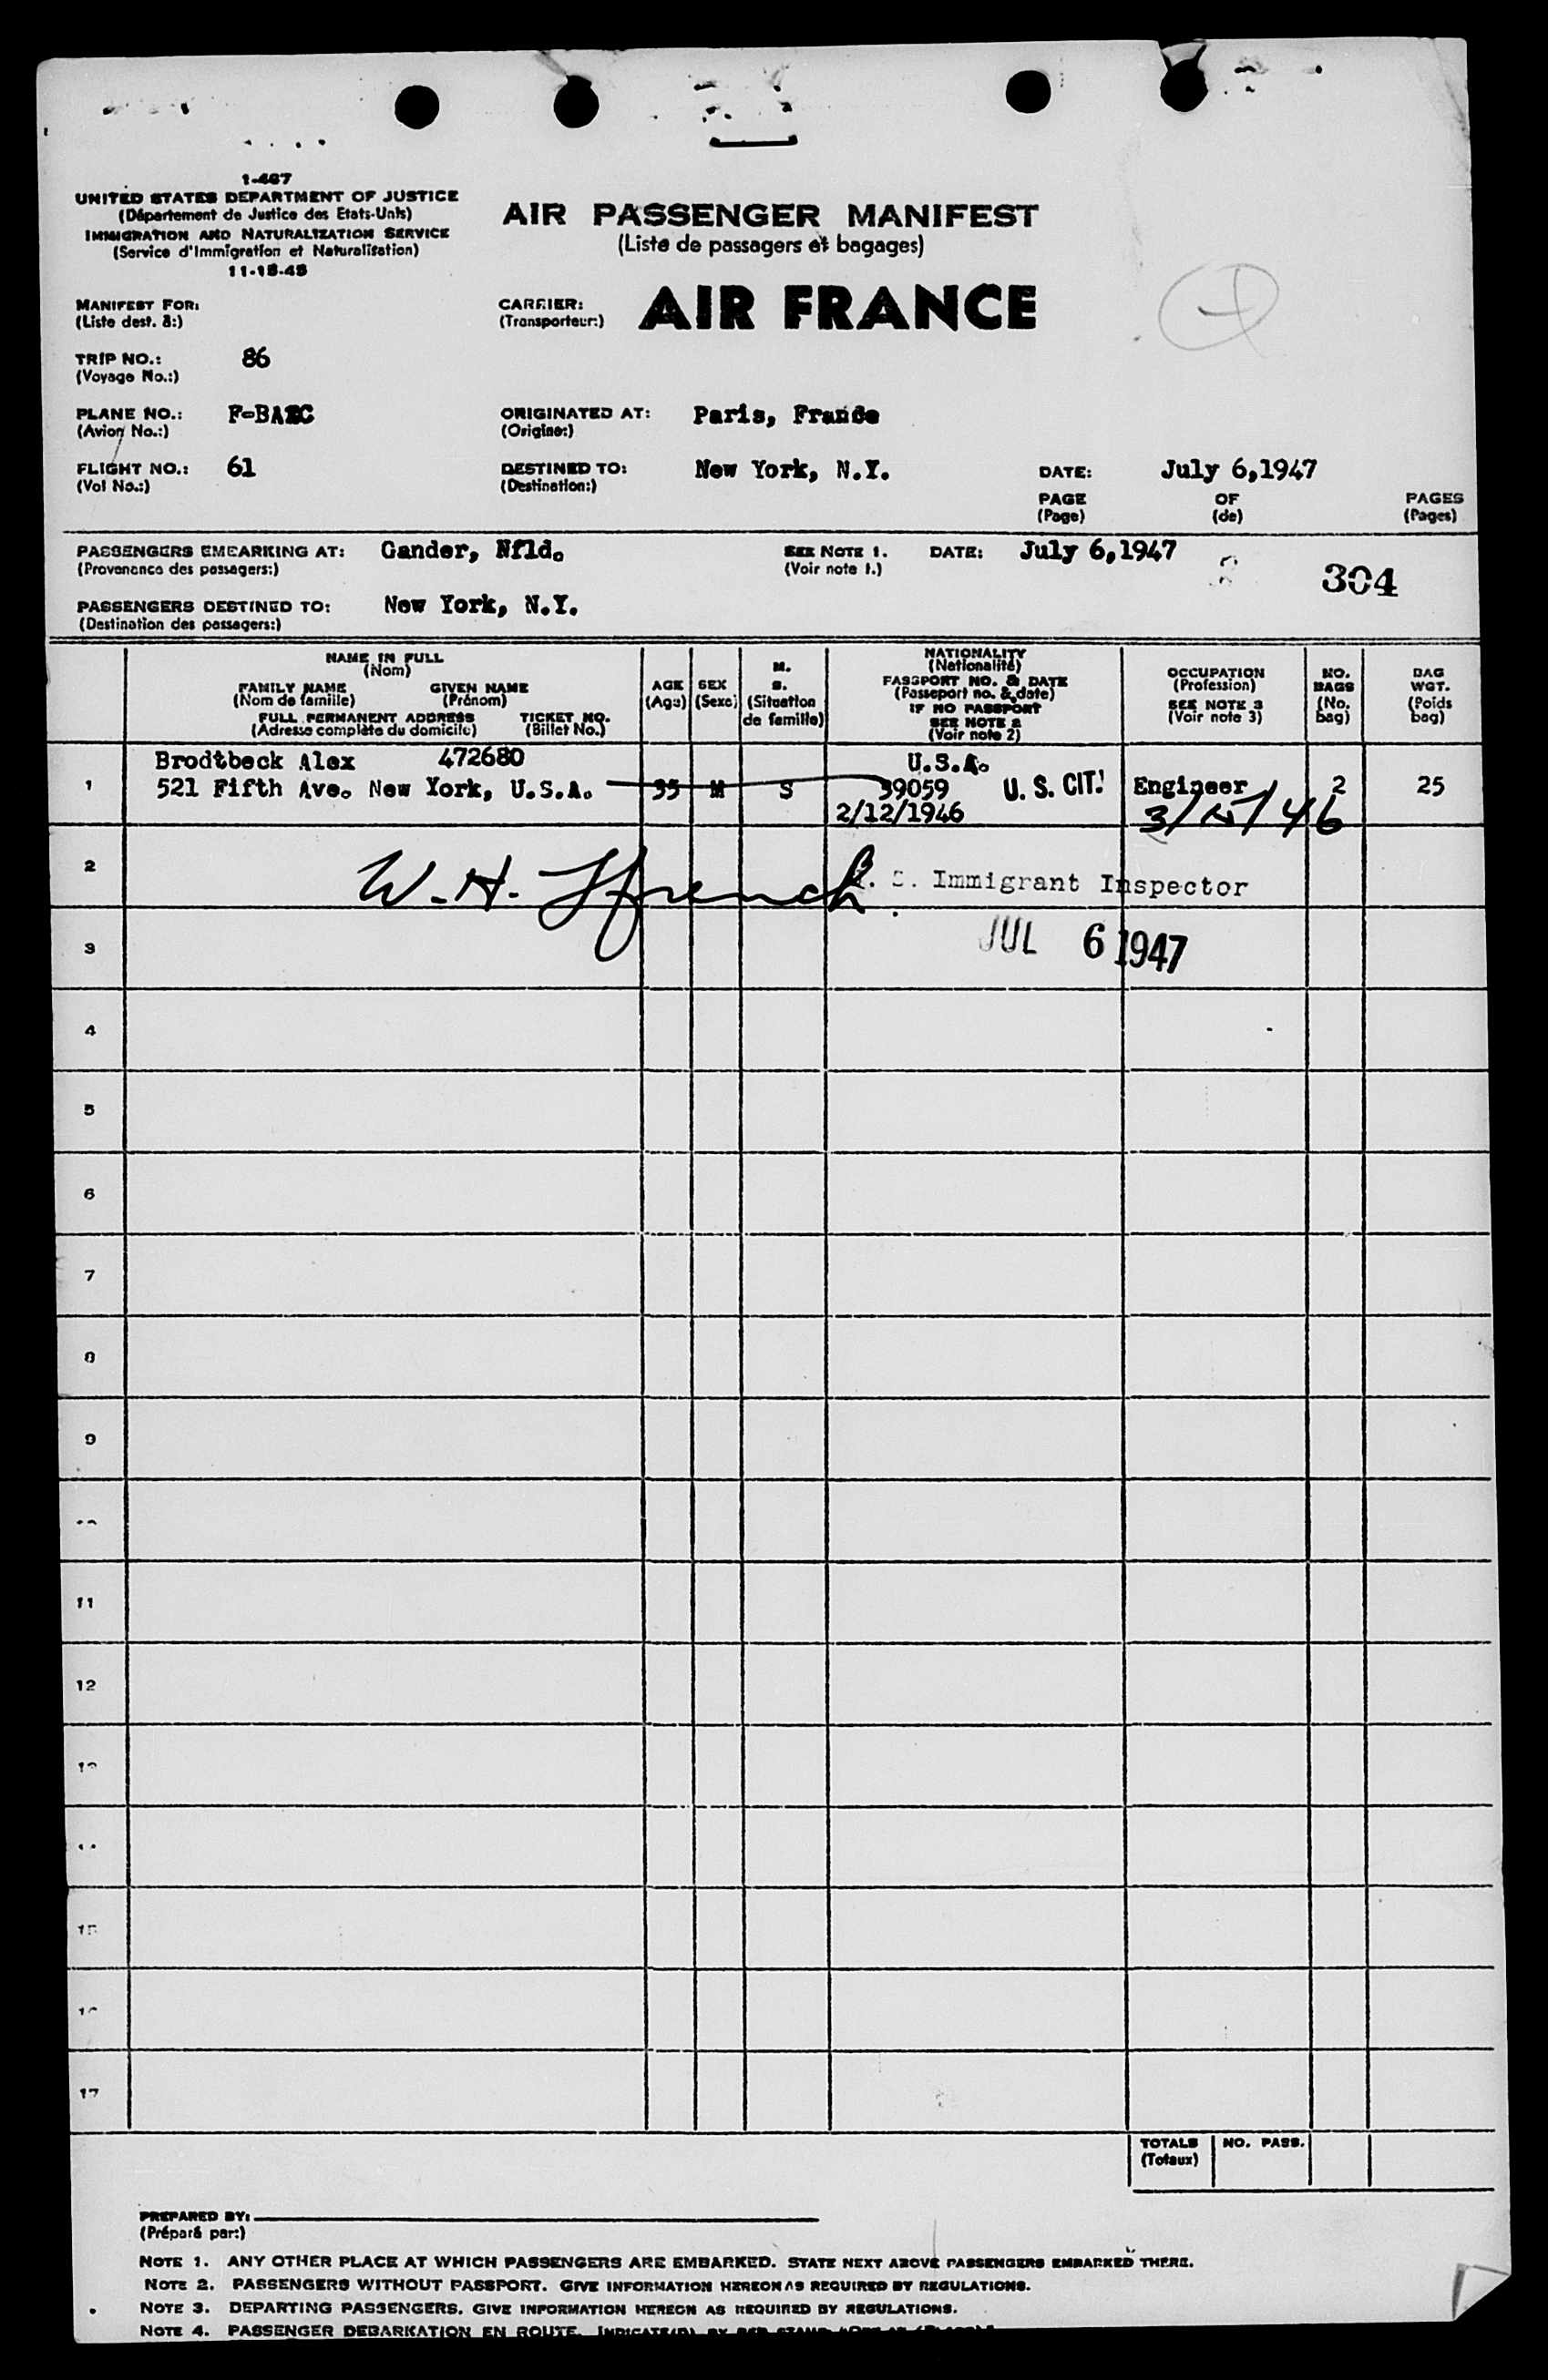 1-467
UNITED STATES DEPARTMENT OF JUSTICE
(Département de Justice des Etats-Unis)
IMMIGRATION AND NATURALIZATION SERVICE
(Service d'Immigration et Naturalisation)
11-18-45
AIR PASSENGER MANIFEST
(Liste de passagers et bagages)
MANIFEST FOR:
(Liste dest. à:)
CARRIER: AIR FRANCE
(Transporteur:)
TRIP NO.: 86
(Voyage No.:)
PLANE NO.: F-BAZC ORIGINATED AT: Paris, France
(Avion No.:) (Origine:)
FLIGHT NO.: 61 DESTINED TO: New York, N.Y. DATE: July 6,1947
(Vol No.:) (Destination:)
PAGE OF PAGES
(Page) (de) (Pages)
PASSENGERS EMBARKING AT: Gander, Nfld. SEE NOTE 1. DATE: July 6,1947
(Provenance des passagers:) (Voir note 1.) 304
PASSENGERS DESTINED TO: New York, N.Y.
(Destination des passagers:)
NAME IN FULL
(Nom)
FAMILY NAME GIVEN NAME
(Nom de famille) (Prénom)
FULL PERMANENT ADDRESS TICKET NO.
(Adresse complète du domicile) (Billet No.)
AGE
(Age)
SEX
(Sexe)
M.
S.
(Situation
de famille)
NATIONALITY
(Nationalité)
PASSPORT NO. & DATE
(Passeport no. & date)
IF NO PASSPORT
SEE NOTE 2
(Voir note 2)
OCCUPATION
(Profession)
SEE NOTE 3
(Voir note 3)
NO.
BAGS
(No.
bag)
BAG
WGT.
(Poids
bag)
Brodtbeck Alex 472680 U.S.A.
1 521 Fifth Ave. New York, U.S.A. 35 M S 39059 U. S. CIT. Engineer 2 25
2/12/1946 3/15/46
2 W. H. Ffrench U. S. Immigrant Inspector
3 JUL 6 1947
4
5
6
7
8
9
11
12
13
15
17
TOTALS NO. PASS.
(Totaux)
PREPARED BY:
(Préparé par:)
NOTE 1. ANY OTHER PLACE AT WHICH PASSENGERS ARE EMBARKED. STATE NEXT ABOVE PASSENGERS EMBARKED THERE.
NOTE 2. PASSENGERS WITHOUT PASSPORT. GIVE INFORMATION HEREON AS REQUIRED BY REGULATIONS.
NOTE 3. DEPARTING PASSENGERS. GIVE INFORMATION HEREON AS REQUIRED BY REGULATIONS.
NOTE 4. PASSENGER DEBARKATION EN ROUTE.